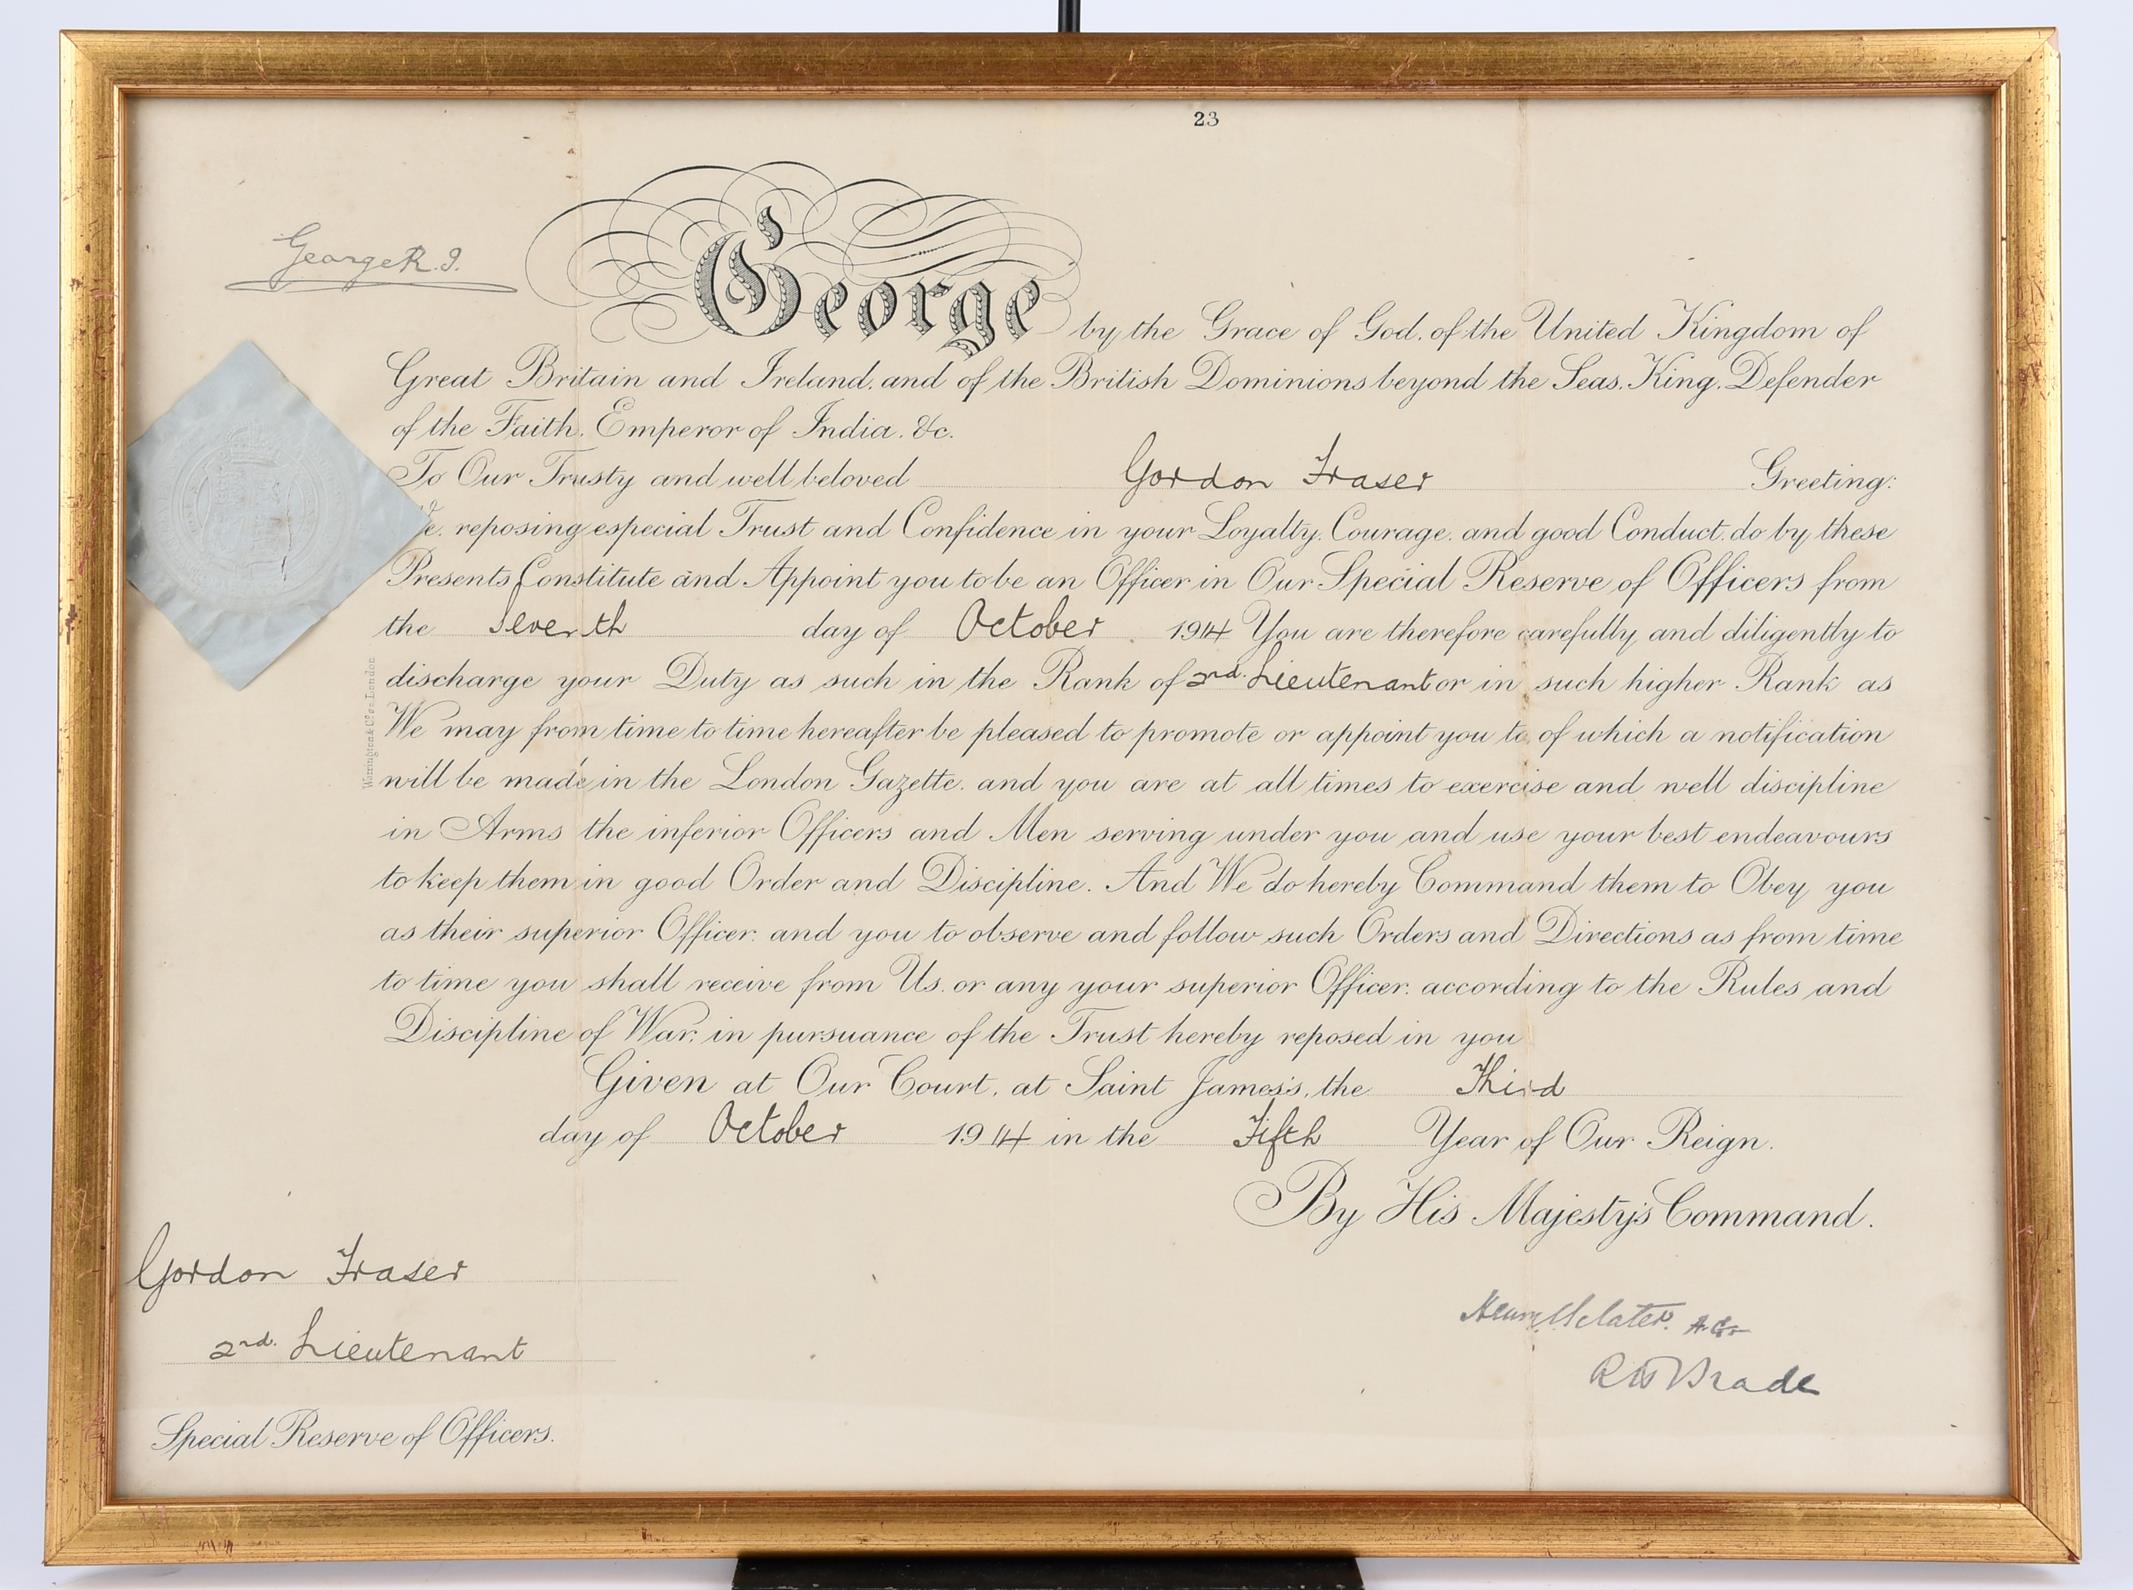 23
George R.I.
George by the Grace of God, of the United Kingdom of
Great Britain and Ireland, and of the British Dominions beyond the Seas, King, Defender
of the Faith, Emperor of India, &c.
To Our Trusty and well beloved Gordon Fraser Greeting:
We, reposing especial Trust and Confidence in your Loyalty, Courage, and good Conduct, do by these
Presents, Constitute and Appoint you to be an Officer in Our Special Reserve of Officers from
the Seventh day of October 1914 You are therefore carefully and diligently to
discharge your Duty as such in the Rank of 2nd. Lieutenant or in such higher Rank as
We may from time to time hereafter be pleased to promote or appoint you to, of which a notification
will be made in the London Gazette, and you are at all times to exercise and well discipline
in Arms the inferior Officers and Men serving under you and use your best endeavours
to keep them in good Order and Discipline. And We do hereby Command them to Obey you
as their superior Officer: and you to observe and follow such Orders and Directions as from time
to time you shall receive from Us, or any your superior Officer, according to the Rules and
Discipline of War, in pursuance of the Trust hereby reposed in you
Given at Our Court, at Saint James's, the Third
day of October 1914 in the Fifth Year of Our Reign.
By His Majesty's Command.
Gordon Fraser
2nd. Lieutenant
Special Reserve of Officers.
Henry Sclater. A.G.
R H Brade
Warrington & Co. London